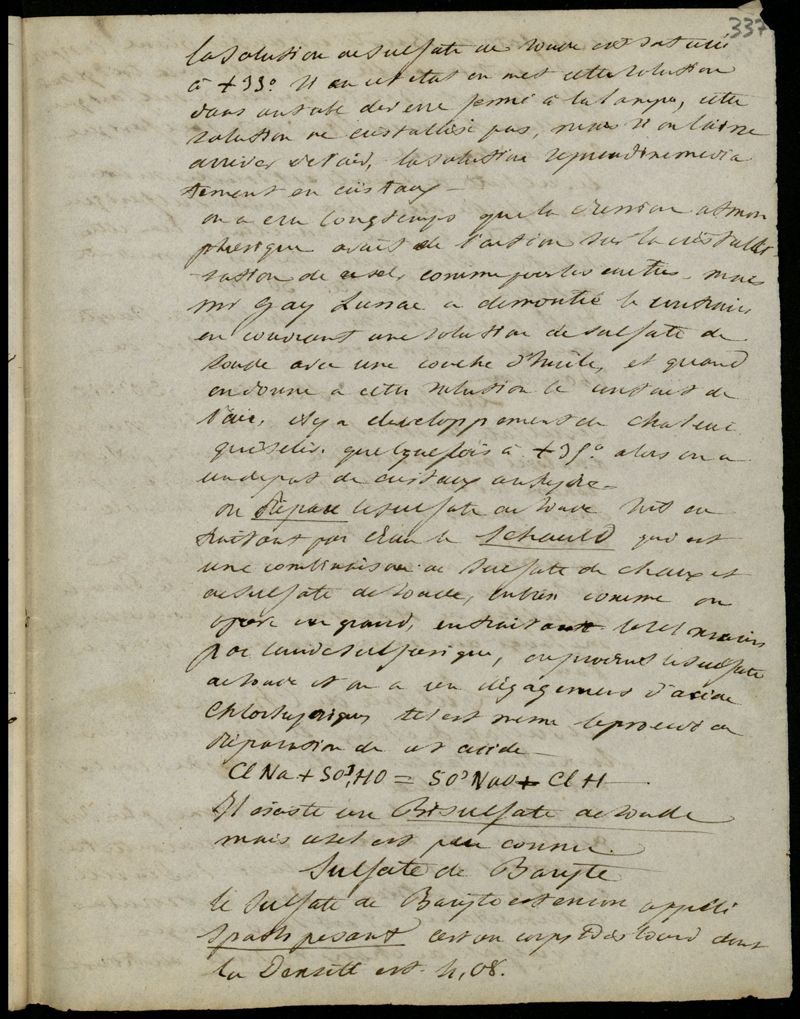 337
la solution de sulfate de soude est saturé
à +33° si en cet état on met cette solution
dans un tube de verre fermé à la lampe, cette
solution ne cristallise pas, mais si on laisse
arriver de l'air, la solution reprend immédia
tement en cristaux —
on a cru longtemps que la pression atmos
phérique avait de l'action sur la cristalli
sation de ce sel, comme pour les autres. mais
mr Gay Lussac a démontré le contraire
en couvrant une solution de sulfate de
soude avec une couche d'huile, et quand
on donne à cette solution le contact de
l'air, il y a développement de chaleur
qui s'élève quelquefois à +35° alors on a
un dépot de cristaux anhydre —
on prépare le sulfate de soude soit en
traitant par l'eau le Schaulo qui est
une combinaison de sulfate de chaux et
de sulfate de soude, ou bien comme on
opère en grand, en traitant le sel marin
par l'acide sulfurique, on produit le sulfate
de soude et on a un dégagement d'acide
chlorhydrique tel est même le procédé de
préparation de cet acide —
Cl Na + SO³,HO = SO³NaO + Cl H —
Il existe un Bisulfate de soude
mais ce sel est peu connu.
Sulfate de Baryte
le sulfate de Baryte est encore appelé
spath pesant c'est un corps très lourd dont
la Densité est 4,08.